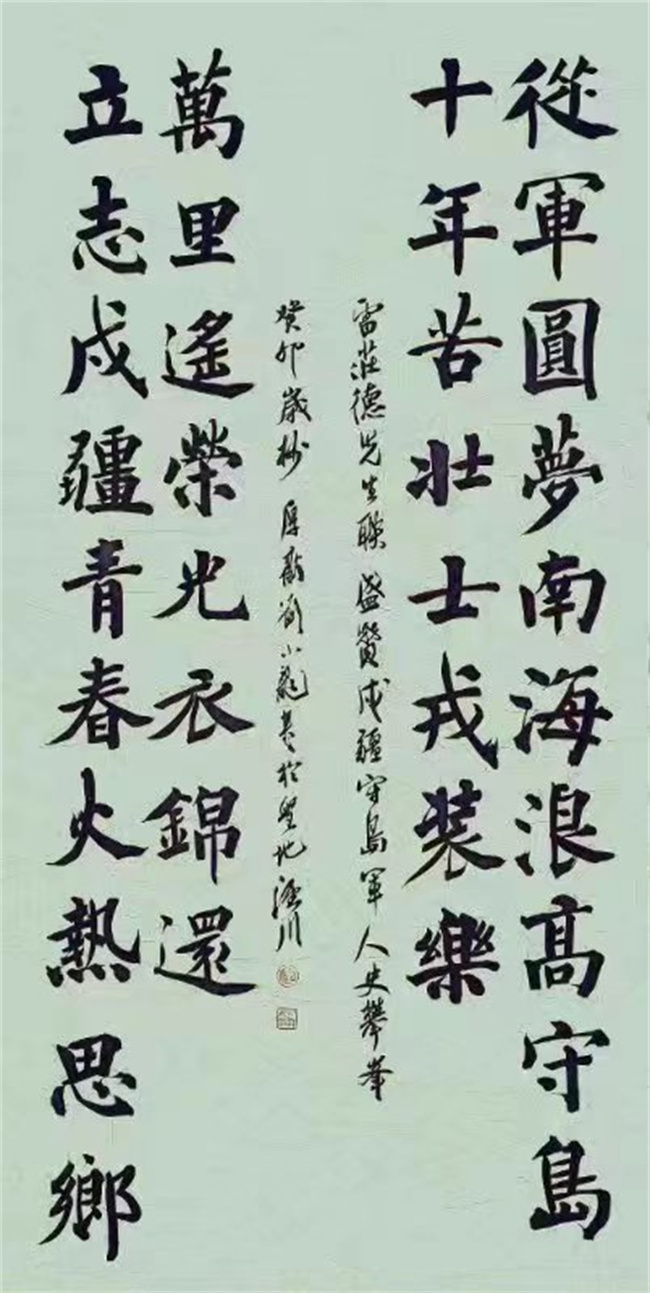 從軍圓夢南海浪高守島
十年苦壯士戎裝樂
立志戍疆青春火熱思鄉
萬里遙榮光衣錦還
雷莊德先生联 盛贊戍疆守島軍人史攀峯
癸卯歲杪 厚 劉小龍書於聖地涇川